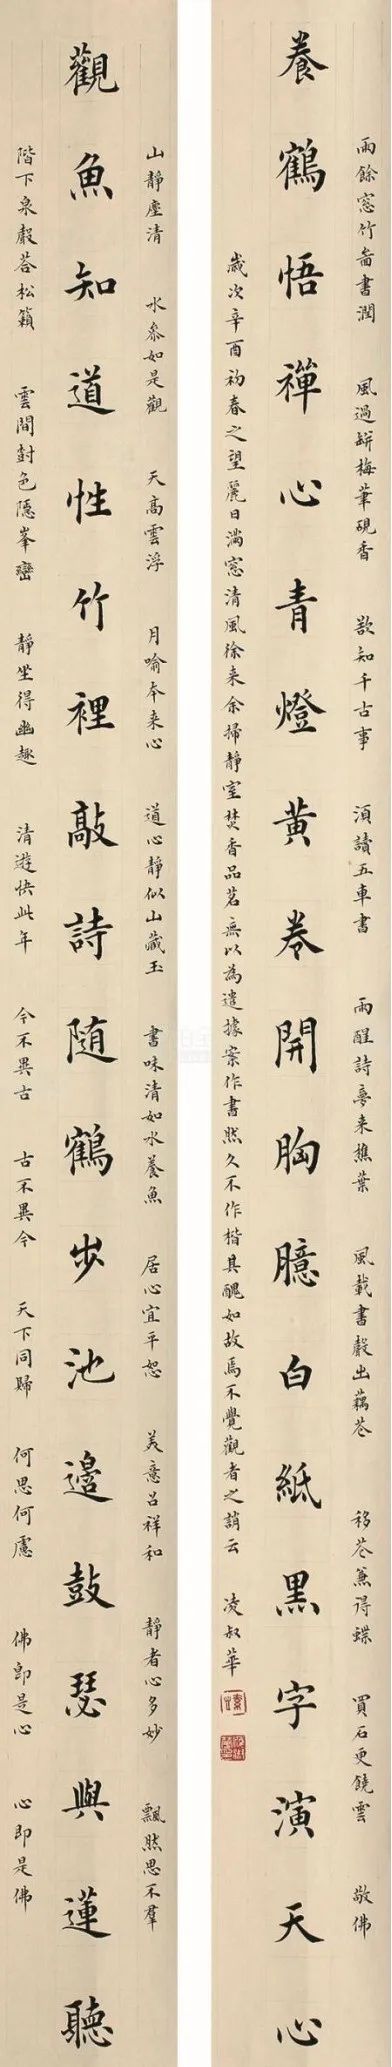 雨餘窓竹啚書潤 風過缾梅筆硯香 欲知千古事 須讀五車書 雨醒詩夢来蕉葉 風載書聲出藕花 移花兼得蝶 買石更饒雲 敬佛
養鶴悟禪心青燈黄卷開胸臆白紙黑字演天心
歲次辛酉初春之望麗日滿窓清風徐来余掃靜室焚香品茗無以為遣據案作書然久不作楷其醜如故焉不覺觀者之誚云 凌叔華
山靜塵清 水參如是觀 天高雲浮 月喻本来心 道心靜似山藏玉 書味清如水養魚 居心宜平恕 美意召祥和 靜者心多妙 飄然思不羣
觀魚知道性竹裡敲詩随鶴步池邊鼓瑟與蓮聽
階下泉聲荅松籟 雲間封色隱峯巒 靜坐得幽趣 清遊快此年 今不異古 古不異今 天下同歸 何思何慮 佛即是心 心即是佛